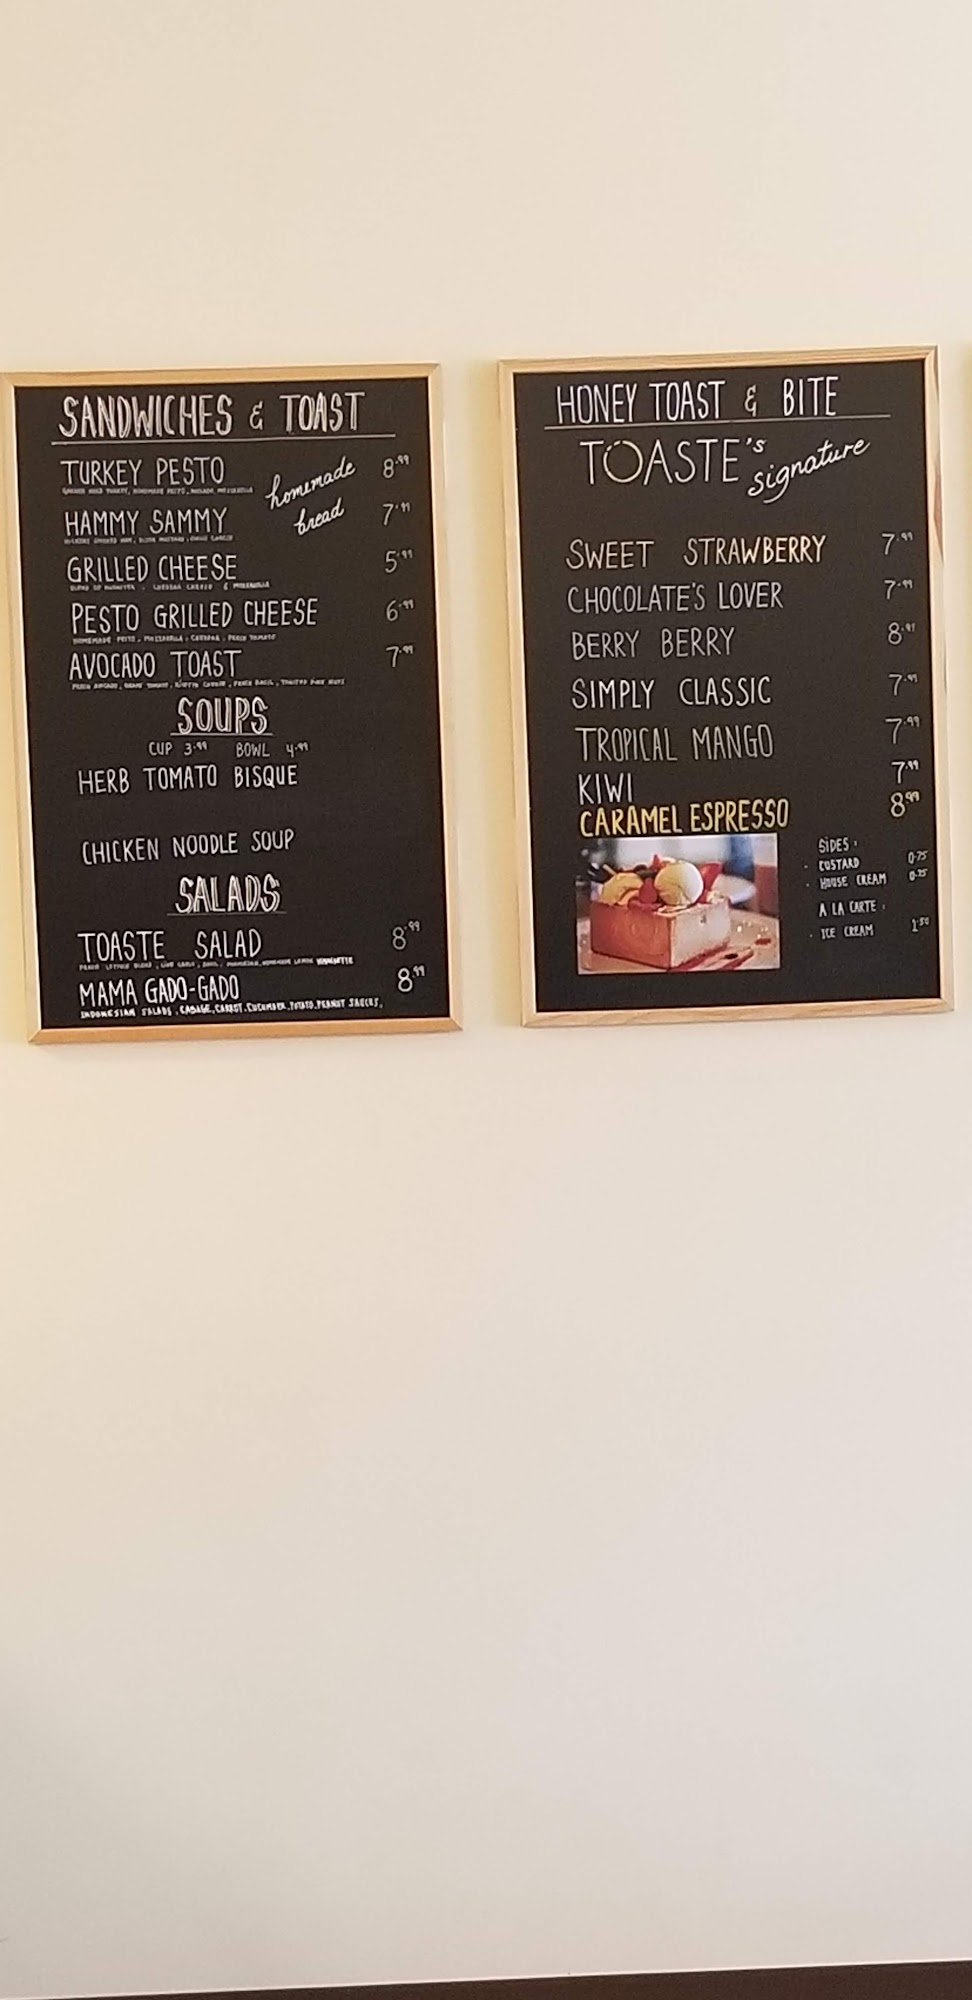 SANDWICHES & TOAST
TURKEY PESTO 8.99
homemade
bread
HAMMY SAMMY 7.99
GRILLED CHEESE 5.99
PESTO GRILLED CHEESE 6.99
HOMEMADE PESTO, MOZZARELLA, CHEDDAR, FRESH TOMATO
AVOCADO TOAST 7.99
SOUPS
CUP 3.99 BOWL 4.99
HERB TOMATO BISQUE
CHICKEN NOODLE SOUP
SALADS
TOASTE SALAD 8.99
MAMA GADO-GADO 8.99
INDONESIAN SALADS, CABAGE, CARROT, CUCUMBER, POTATO, PEANUT SAUCES,
HONEY TOAST & BITE
TOASTE's signature
SWEET STRAWBERRY 7.99
CHOCOLATE'S LOVER 7.99
BERRY BERRY 8.99
SIMPLY CLASSIC 7.99
TROPICAL MANGO 7.99
KIWI 7.99
CARAMEL ESPRESSO 8.99
SIDES:
· CUSTARD 0.75
· HOUSE CREAM 0.75
A LA CARTE:
· ICE CREAM 1.50